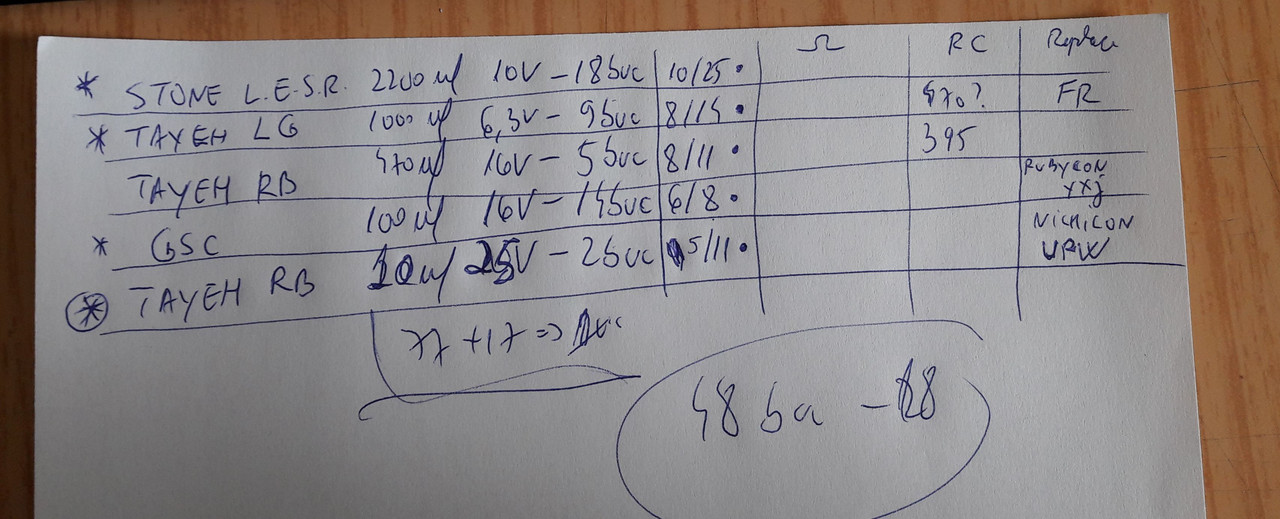 Ω RC Replace
* STONE L.E.S.R. 2200 uf 10V – 18buc 10/25 • 470? FR
* TAYEH LG 1000 uf 6,3V – 9buc 8/15 • 395
TAYEH RB 470uf 16V – 5buc 8/11 • RUBYCON YXJ
* GSC 100 uf 16V – 14buc 6/8 • NICHICON UPW
* TAYEH RB 10uf 25V – 2buc 5/11 •
77 + 17 =>
48 ba – 18